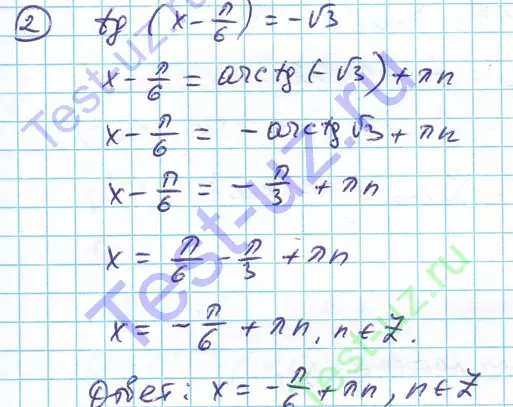 2) tg (x - π/6) = -√3
x - π/6 = arctg(-√3) + πn
x - π/6 = -arctg√3 + πn
x - π/6 = -π/3 + πn
x = π/6 - π/3 + πn
x = -π/6 + πn, n ∈ Z.
Ответ: x = -π/6 + πn, n ∈ Z
Test-uz.ru
Test-uz.ru
Test-uz.ru